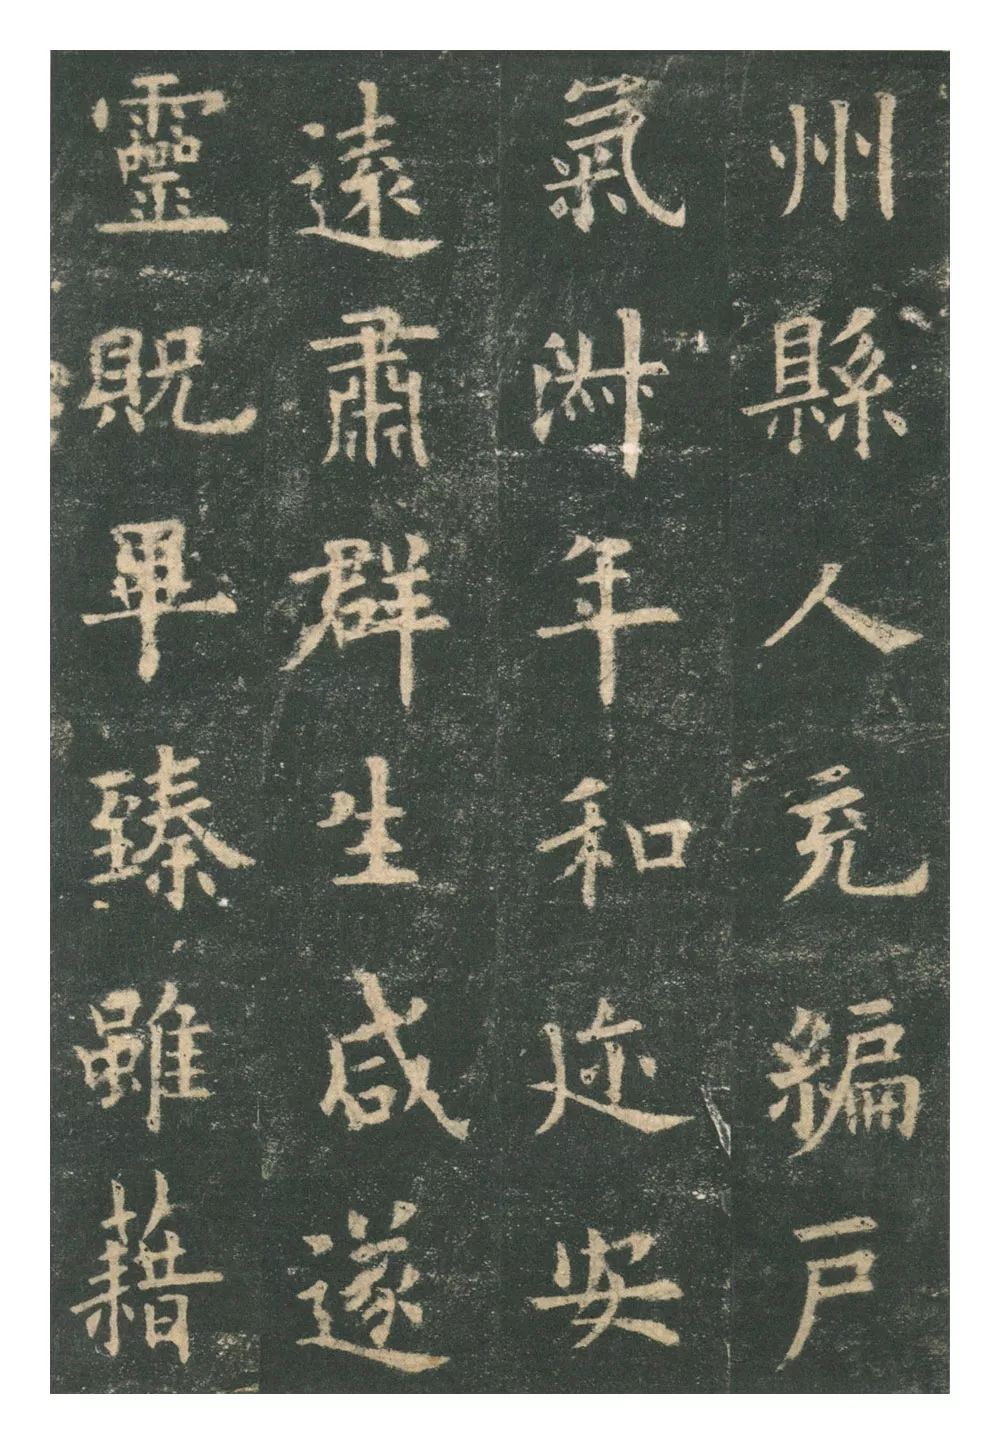 州縣人充編戶
氣淋年和迩安
遠肅群生咸遂
靈貺畢臻雖藉